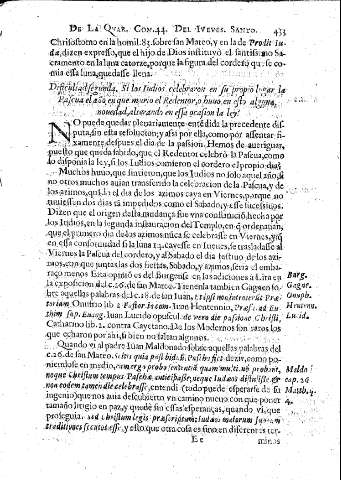 DE LA QVAR. CON. 44. DEL IVEVES SANTO. 433
Chrisostomo en la homil. 83. sobre san Mateo, y en la de Prodit Iu-
da, dizen expresso, que el hijo de Dios instituyò el santissimo Sa-
cramento en la luna catorze, porque la figura del cordero que se co-
mia essa luna, quedasse llena.
Dificultad segunda, Si los Iudios celebraron en su propio lugar la
Pascua el año en que murio el Redentor, o huuo en esto alguna
nouedad, alterando en essa ocasion la ley?
NO puede quedar plenariamente entedida la precedente dis-
puta, sin esta resolucion; y assi por ella, como por assentar fi-
xamente despues el dia de la passion. Hemos de aueriguar,
puesto que queda fabido, que el Redentor celebrò la Pascua, como
disponia la ley, si los Iudios comieron el cordero el propio dia?
Muchos huuo, que sintieron, que los Iudios no solo aquel año, si
no otros muchos auian transferido la celebracion de la Pascua, y de
los azimos, quādo el dia de los azimos caya en Viernes, porque no
tuuiessen dos dias tā impedidos como el Sabado, y esse sucessiuos.
Dizen que el origen desta mudança fue vna constitucio hecha por
los Iudios, en la segunda instauracion del Templo, en q ordenaron,
que el primero dia de los azimos nūca se celebrasse en Viernes, y q
en essa conformidad si la luna 14. cayesse en Iueues, se trasladasse al
Viernes la Pascua del cordero, y al Sabado el dia festiuo de los azi-
mos, con que juntas las dos fiestas, Sabado, y azimos, seria el emba-
raço menos. Esta opiniō es del Burgēsi en las adiciones a Lira en
la exposicion del c. 26. de san Mateo. Tienenla tambien Gagaeo so-
bre aquellas palabras del c. 18. de san Iuan, & ipsi non introierunt Præ-
torium, Onufrio lib. 2. Fastor. in com. Iuan Hentennio, Præf. ad Eu-
thim sup. Euang. Iuan Lucido opuscul. de vero die passione Christi,
Catharino lib. 2. contra Cayetano. De los Modernos son raros los
que echaron por ahi, si bien no faltan algunos.
Quando vi al padre Iuan Maldonado sobre aquellas palabras del
c. 26. de san Mateo. Scitis quia post bid. &c. Pascha fiet dezir, como po-
niendose en medio,
noque Christum tempus Paschæ anticipasse, neque Iudæos distulisse &
non eodem tamen die celebrasse, entendi (tudo puede esperarse de su
ingenio) que nos auia descubierto vn camino nueuo con que poner
tamaño litigio en paz, y quede sin essas esperanças, quando vi, que
proseguia. sed Christum legis præscriptum: Iudæos maiorum suorum
traditiones secutos esse, y esto que otra cosa es sino en diferentes ter-
Ee
minos
Burg.
Gagæ.
Onuph.
Hentenn.
Lucid.
Maldo.
cap. 26
Matth. q.
4.